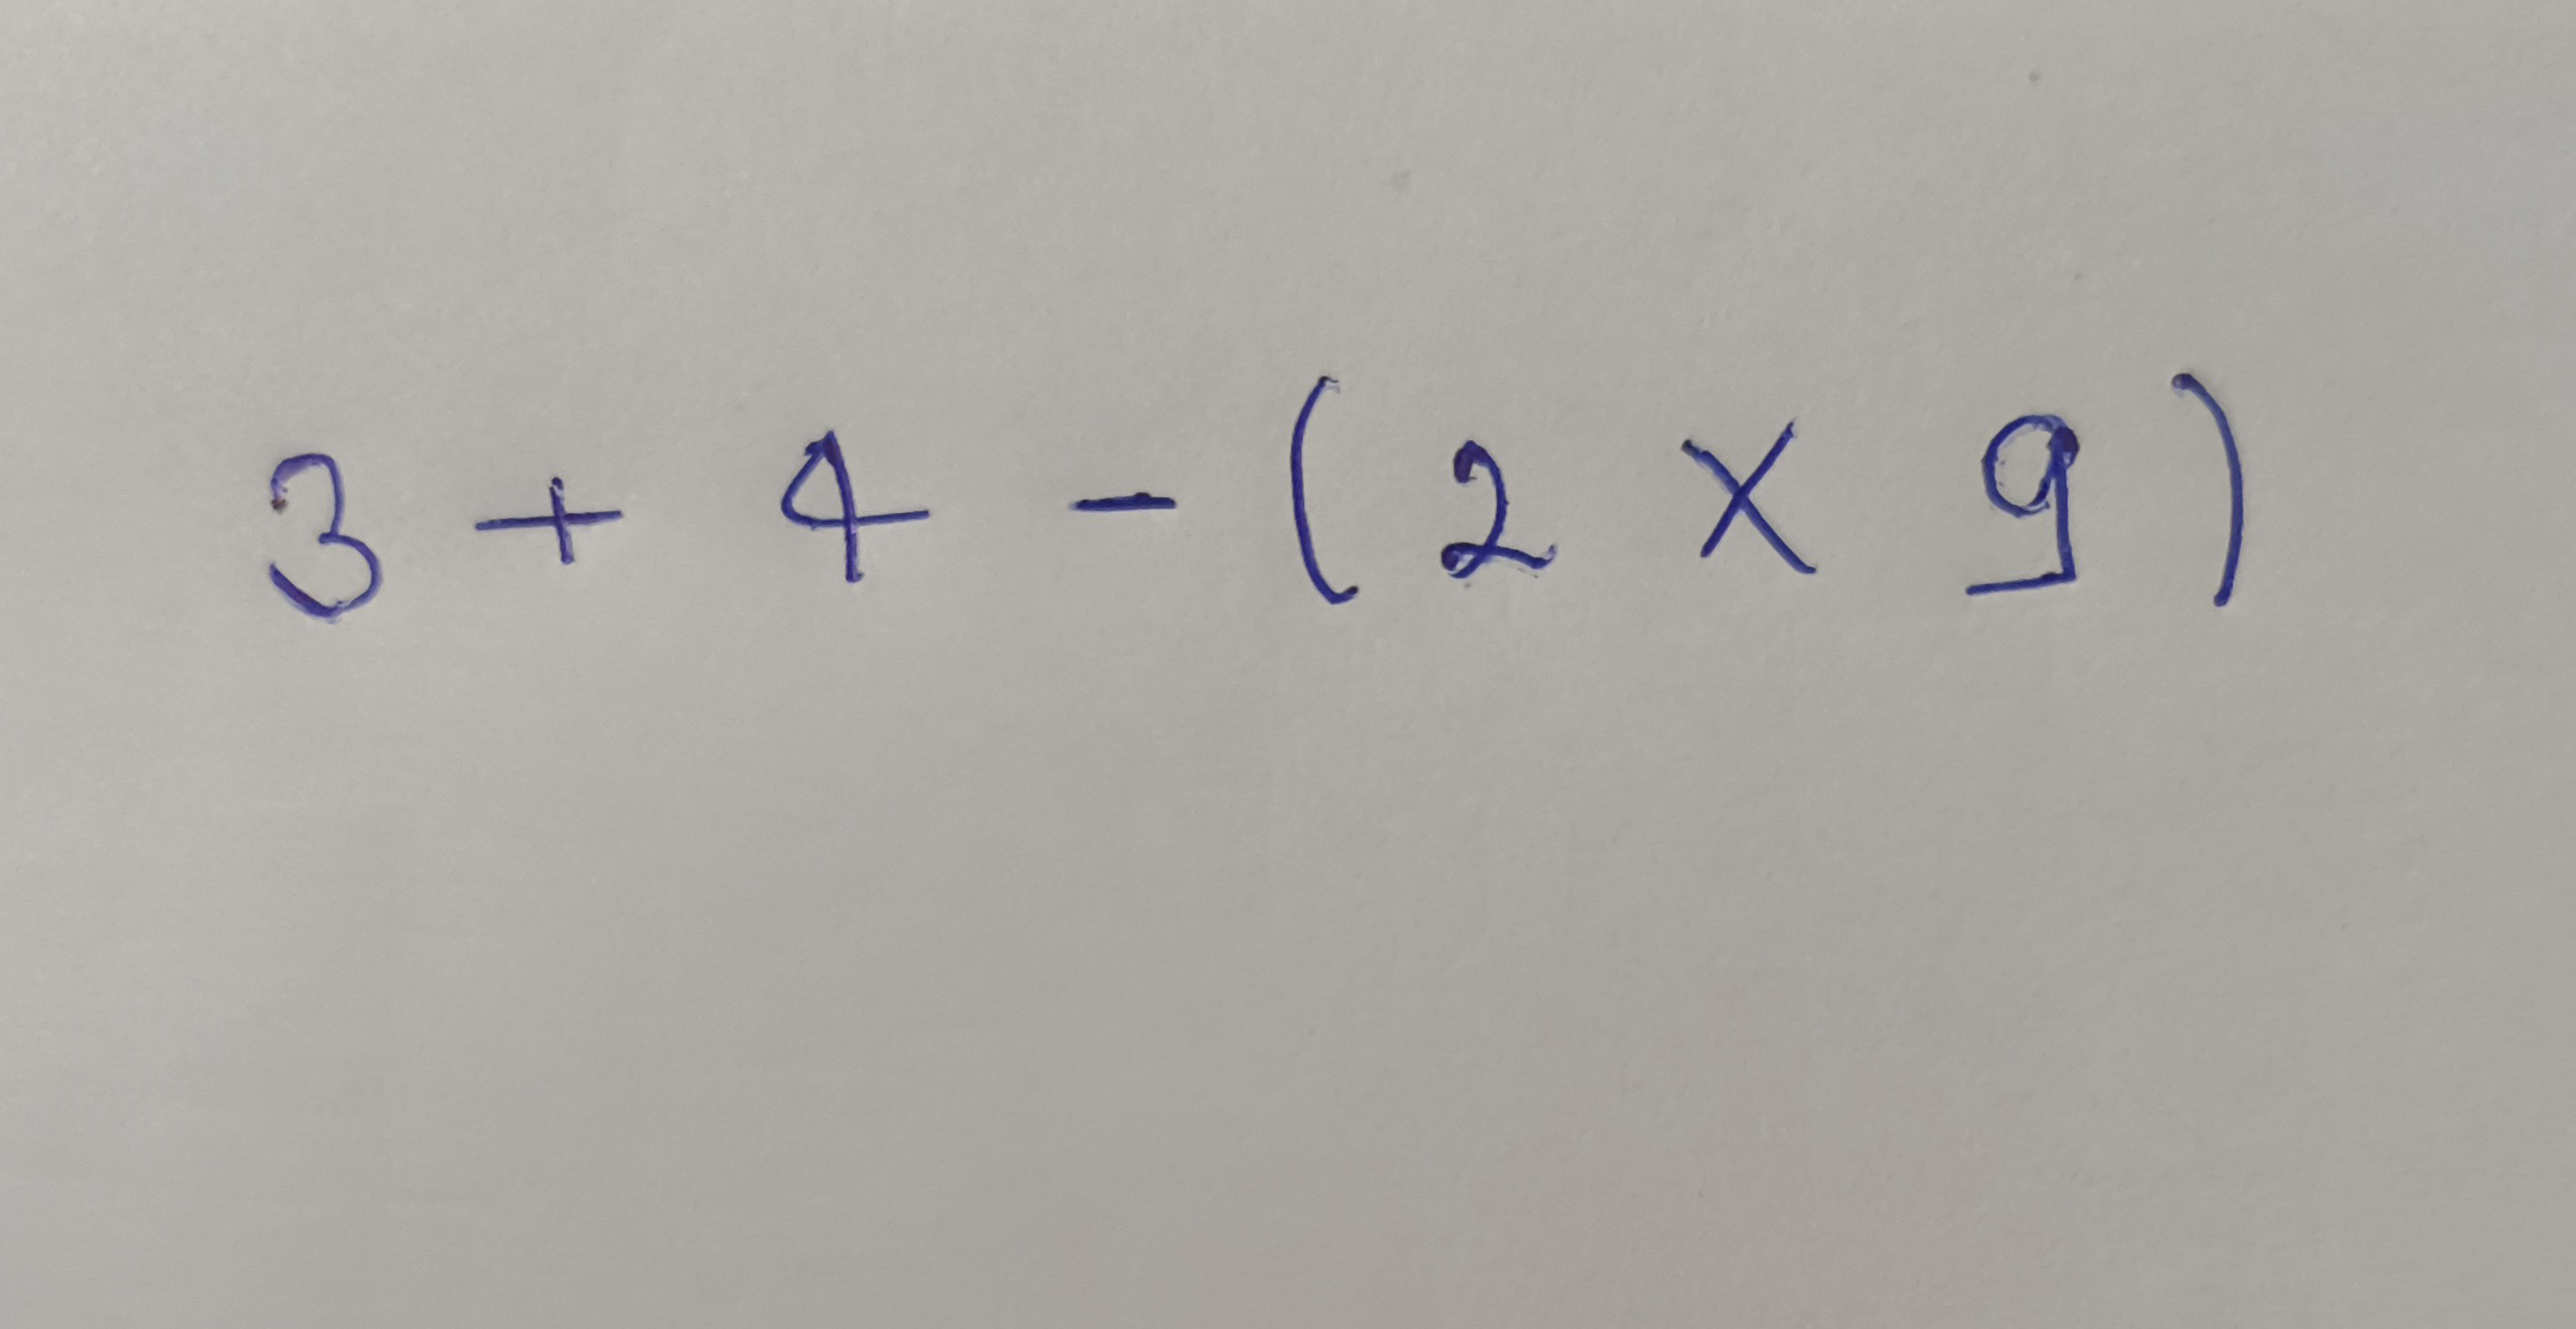 3 + 4 - ( 2 × 9 )